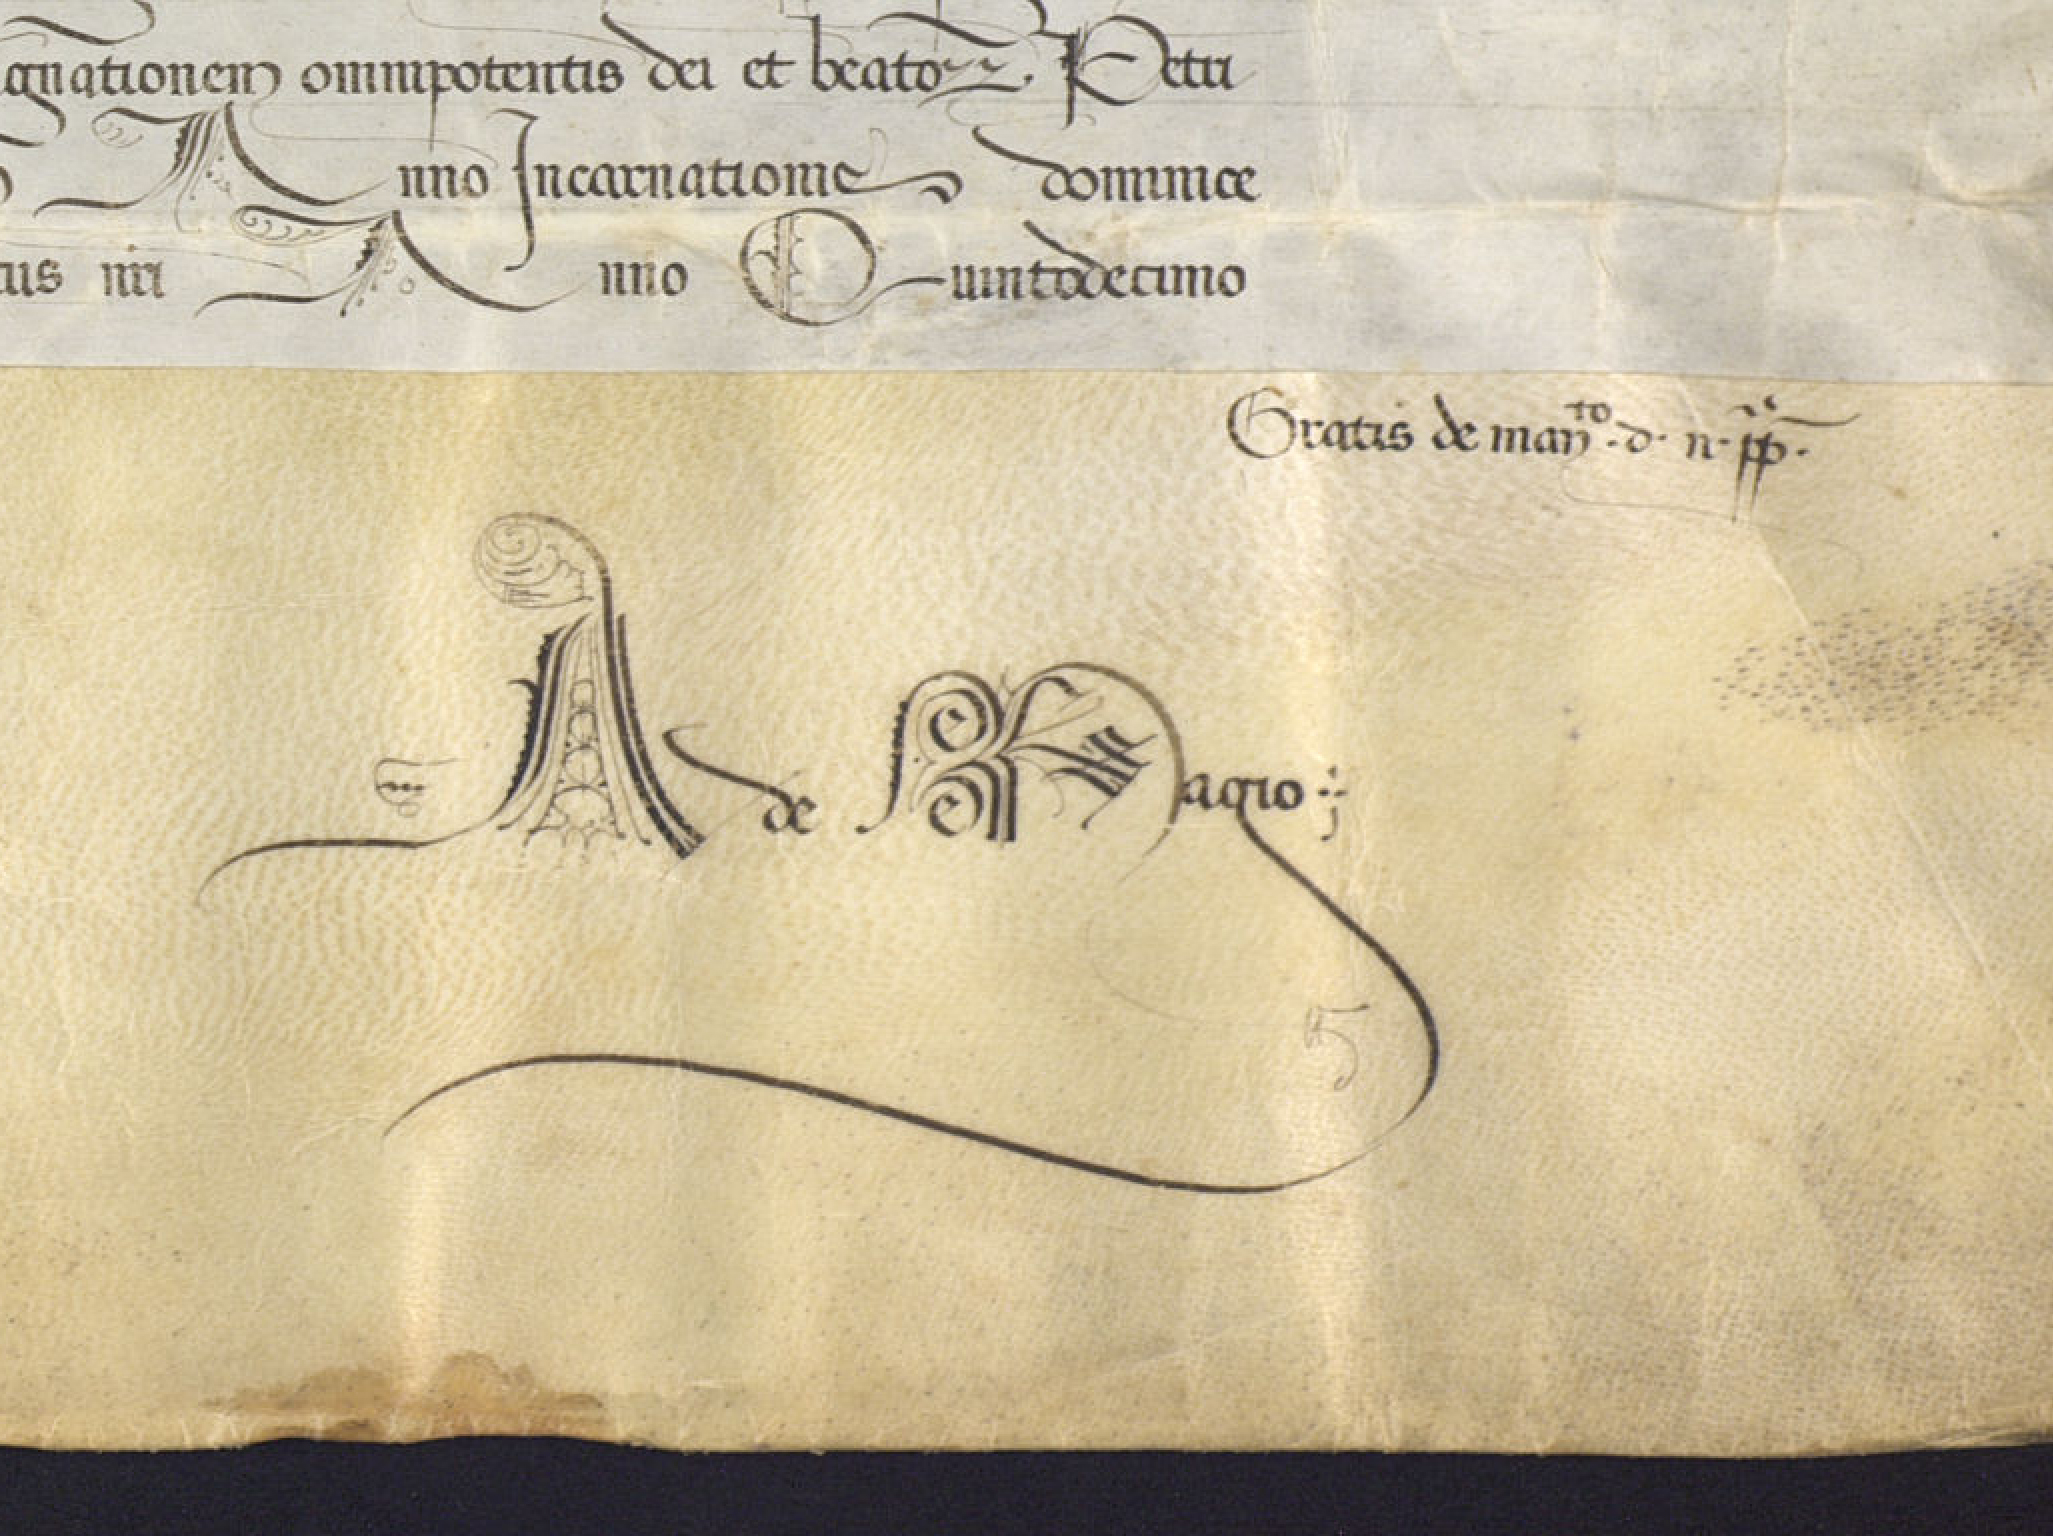 gnationem omnipotentis dei et beatoꝝ Petri
A nno Incarnationis dominice
tus nri Anno Quintodecimo
Gratis de manto. d. n. pp.
A de Magio
5